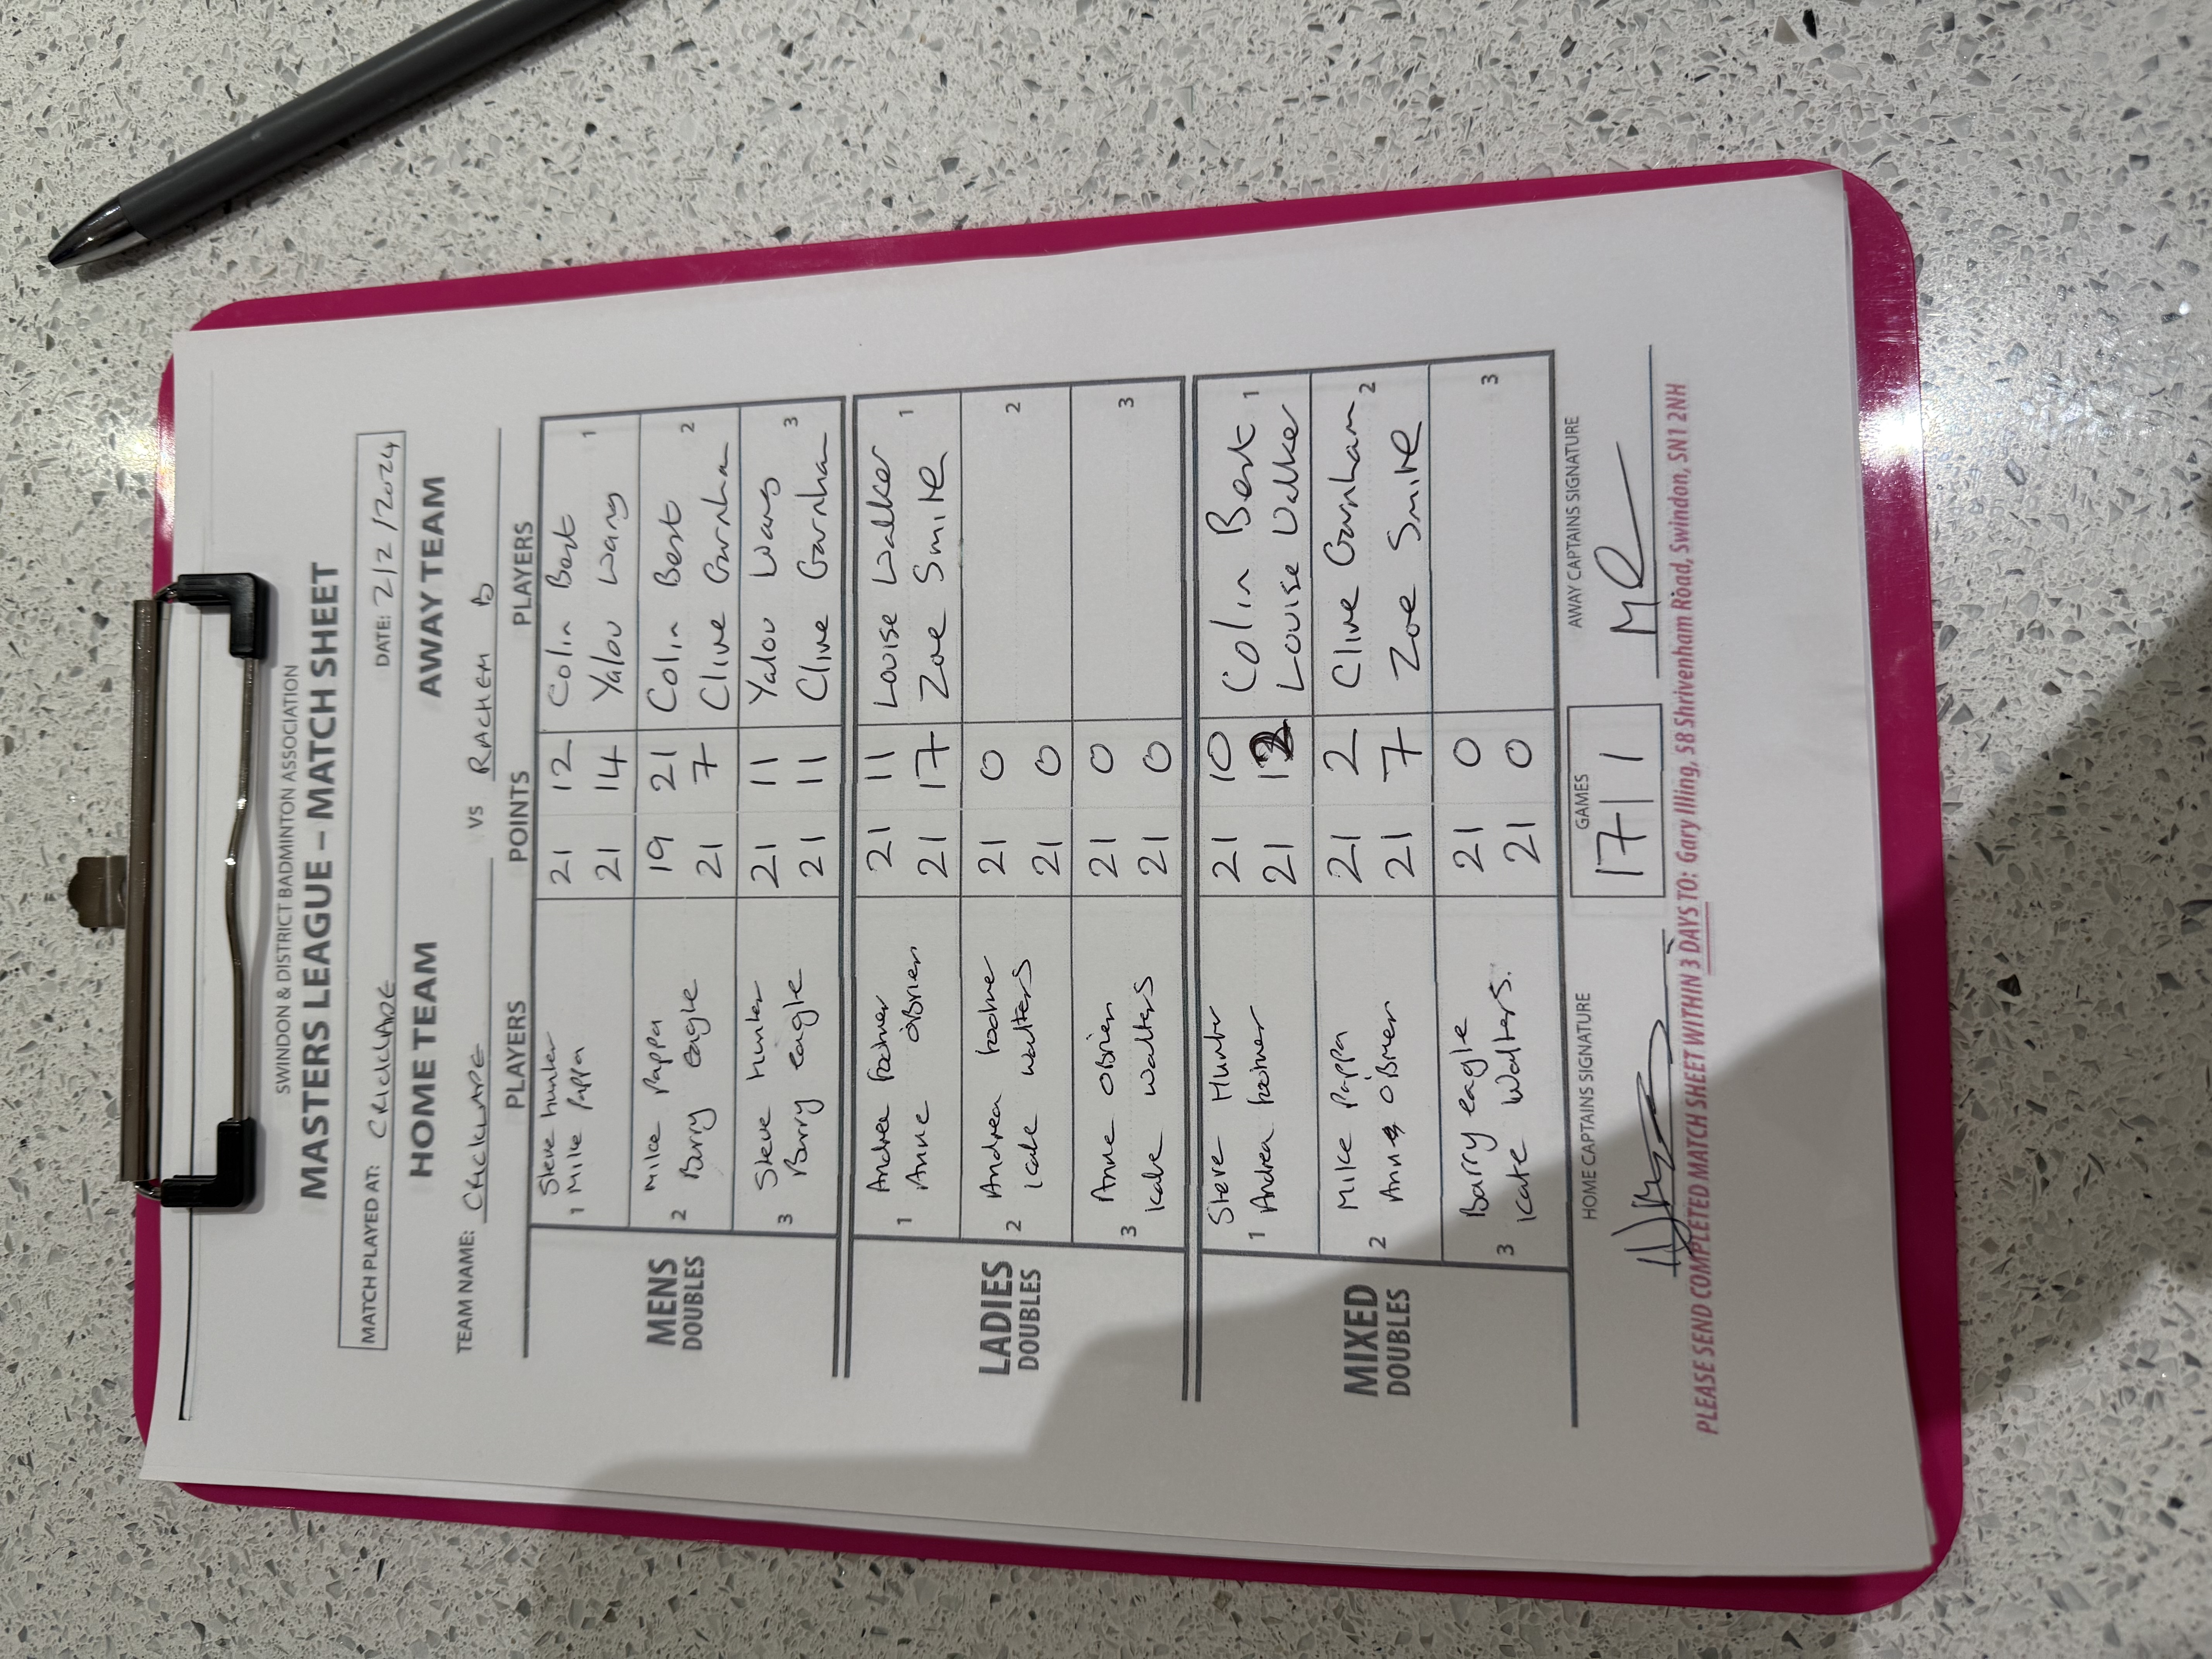 SWINDON & DISTRICT BADMINTON ASSOCIATION
MASTERS LEAGUE – MATCH SHEET
MATCH PLAYED AT: CRICKLADE DATE: 2/2/2024
HOME TEAM AWAY TEAM
TEAM NAME: CRICKLADE VS RACHEM B
PLAYERS POINTS PLAYERS
MENS DOUBLES
1 Steve hunter 21 12 Colin Best 1
Mike Pappa 21 14 Yalou Wang
2 Mike Pappa 19 21 Colin Best 2
Barry eagle 21 7 Clive Garnham
3 Steve hunter 21 11 Yalou Wang 3
Barry eagle 21 11 Clive Garnham
LADIES DOUBLES
1 Andrea 21 11 Louise Walker 1
Anne O'Brien 21 17 Zoe Smile
2 Andrea 21 0 2
Kate Walters 21 0
3 Anne O'Brien 21 0 3
Kate Walters 21 0
MIXED DOUBLES
1 Steve Hunter 21 10 Colin Best 1
Andrea 21 12 Louise Walker
2 Mike Pappa 21 2 Clive Garnham 2
Anne O'Brien 21 7 Zoe Smile
3 Barry eagle 21 0 3
Kate Walters. 21 0
HOME CAPTAINS SIGNATURE GAMES AWAY CAPTAINS SIGNATURE
17 1
PLEASE SEND COMPLETED MATCH SHEET WITHIN 3 DAYS TO: Gary Illing, 58 Shrivenham Road, Swindon, SN1 2NH